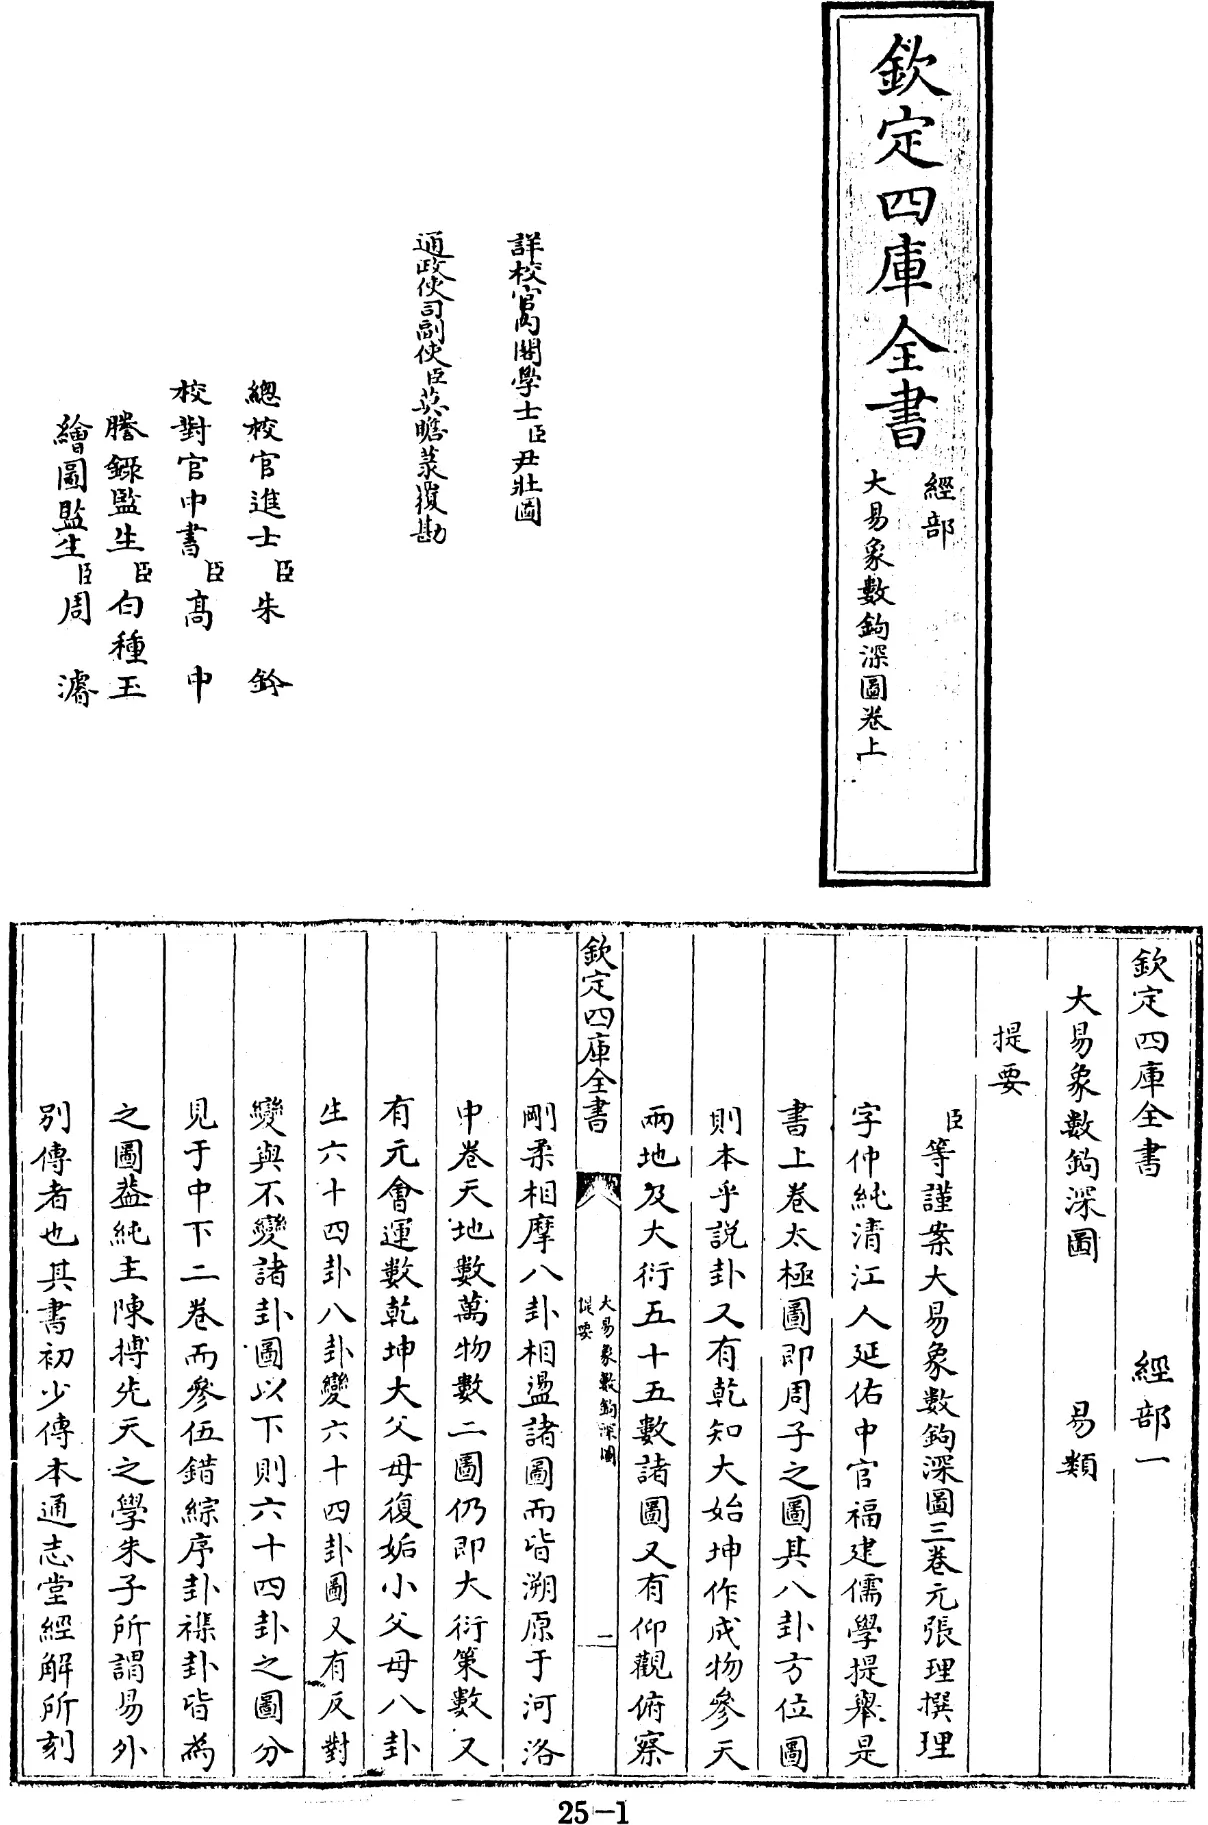 欽定四庫全書
經部
大易象數鉤深圖卷上
詳校官內閣學士臣尹壯圖
通政使司副使臣莫瞻菉覆勘
總校官進士臣朱鈐
校對官中書臣高中
謄錄監生臣白種玉
繪圖監生臣周濬
欽定四庫全書 經部一
大易象數鉤深圖 易類
提要
臣等謹案大易象數鉤深圖三卷元張理撰理
字仲純清江人延佑中官福建儒學提舉是
書上卷太極圖即周子之圖其八卦方位圖
則本乎説卦又有乾知大始坤作成物參天
兩地及大衍五十五數諸圖又有仰觀俯察
欽定四庫全書
大易象數鉤深圖
提要
二
剛柔相摩八卦相盪諸圖而皆溯原于河洛
中卷天地數萬物數二圖仍即大衍策數又
有元會運數乾坤大父母復姤小父母八卦
生六十四卦八卦變六十四卦圖又有反對
變與不變諸卦圖以下則六十四卦之圖分
見于中下二卷而參伍錯綜序卦襍卦皆為
之圖葢純主陳摶先天之學朱子所謂易外
別傳者也其書初少傳本通志堂經解所刻
25-1